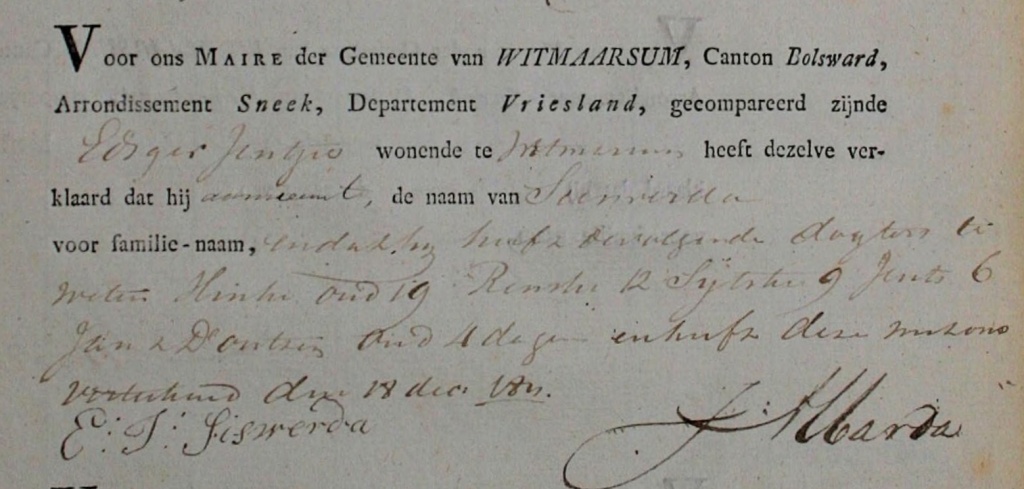 Voor ons MAIRE der Gemeente van WITMAARSUM, Canton Bolsward,
Arrondissement Sneek, Departement Vriesland, gecompareerd zijnde
Edger Jentjes wonende te Witmarsum heeft dezelve ver-
klaard dat hij aanneemt, de naam van Siswerda
voor familie-naam, en dat hij heeft de volgende dogters te
weten Hinke oud 19 Renske 12 Sijtske 9 Jents 6
Jan & Doutzen oud 4 dagen en heeft deze met ons
vertekend den 18 dec: 1811.
E: J: Siswerda